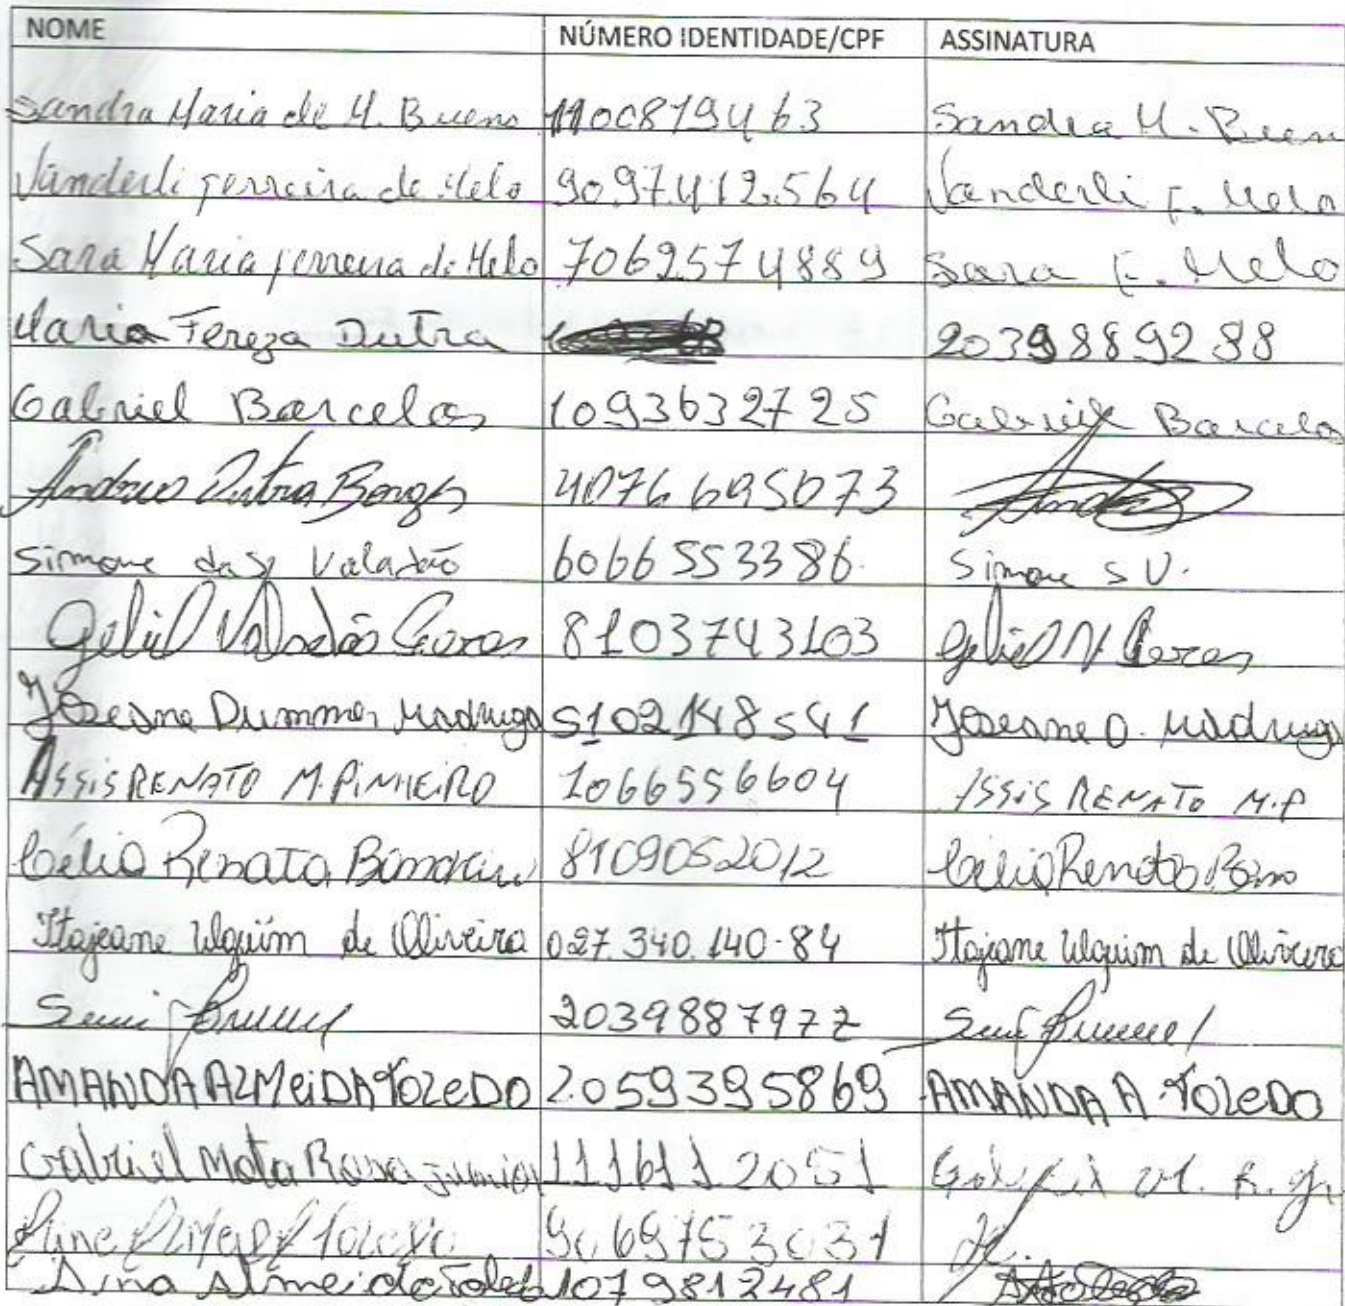 NOME NÚMERO IDENTIDADE/CPF ASSINATURA
Sandra Maria de M. Bueno 1100879463 Sandra M. Buen
Vanderli ferreira de Melo 9097412564 Vanderli F. Melo
Sara Maria ferreira de Melo 7062574889 Sara F. Melo
Maria Tereza Dutra 2039889288
Gabriel Barcelos 1093632725 Gabriel Barcelos
Andreo Dutra Borges 4076695073
Simone da S. Valadão 6066553386 Simone S V.
Geliel Valadão 8103743103 Geliel V.
Joseane Dummer Madruga 5102148541 Joseane D. Madruga
ASSIS RENATO M. PiNHEiRO 1066556604 ASSiS RENATO M.P
Célio Renato 8109052012 Célio Renato
Itajeane Ulguim de Oliveira 027.340.140-84 Itajeane Ulguim de Oliveira
2039887977
AMANDA ALMeiDA TOLeDO 2059395869 AMANDA A. TOLeDO
Gabriel Mota Rosa Junior 1116112051 Gabriel M. R. Jr
9069753031
Almeida Toledo 1079812481